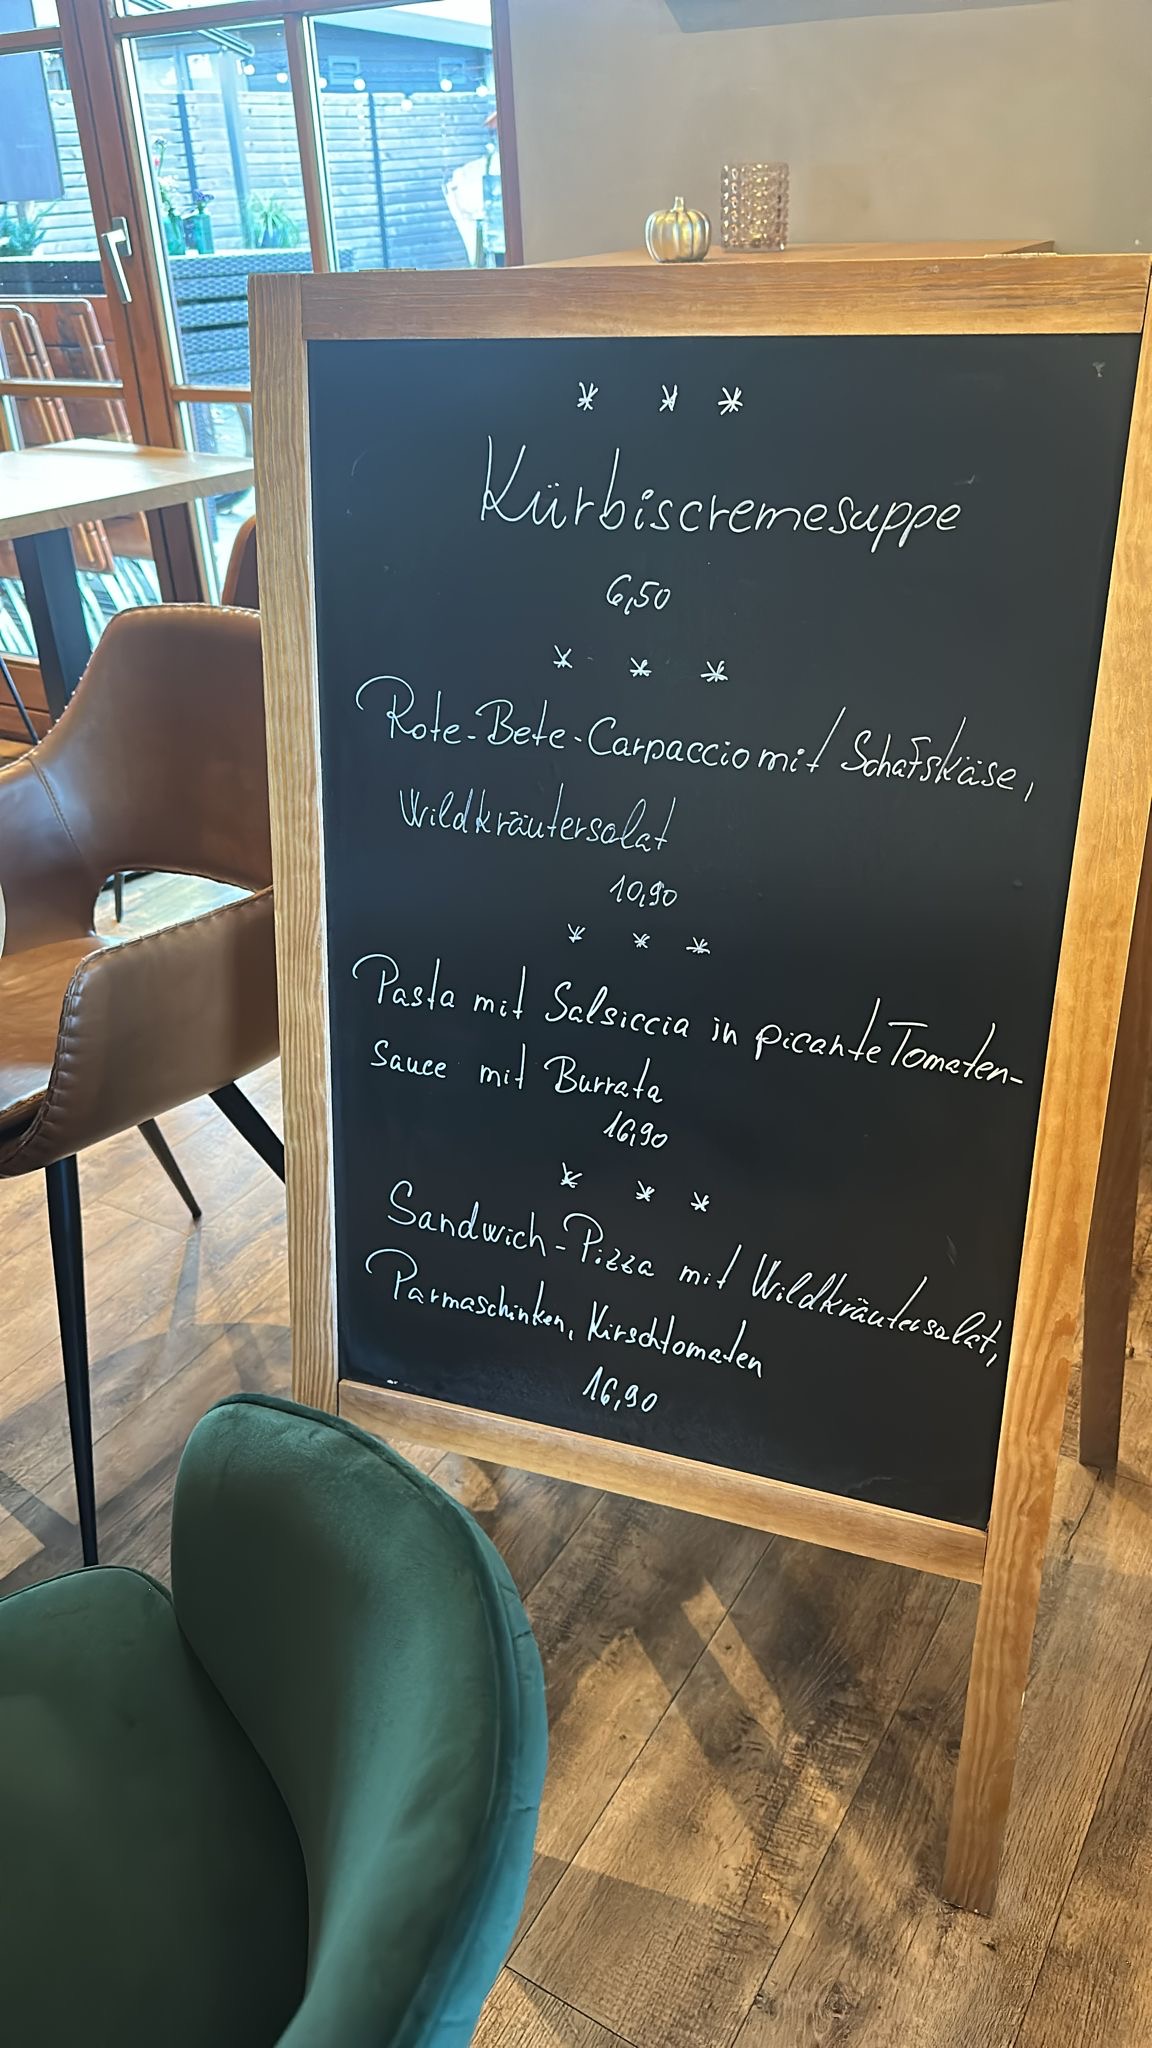 * * *
Kürbiscremesuppe
6,50
* * *
Rote-Bete-Carpaccio mit Schafskäse,
Wildkräutersalat
10,90
* * *
Pasta mit Salsiccia in picante Tomaten-
sauce mit Burrata
16,90
* * *
Sandwich-Pizza mit Wildkräutersalat,
Parmaschinken, Kirschtomaten
16,90